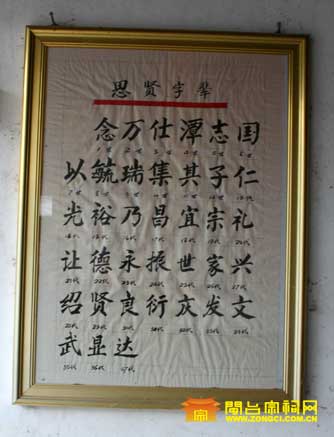 思贤字辈
念万仕潭志国
以毓瑞集其子仁
光裕乃昌宜宗礼
让德永振世家兴
绍贤良衍庆发文
武显达
閩台宗祠网
WWW.ZONGCI.COM.CN